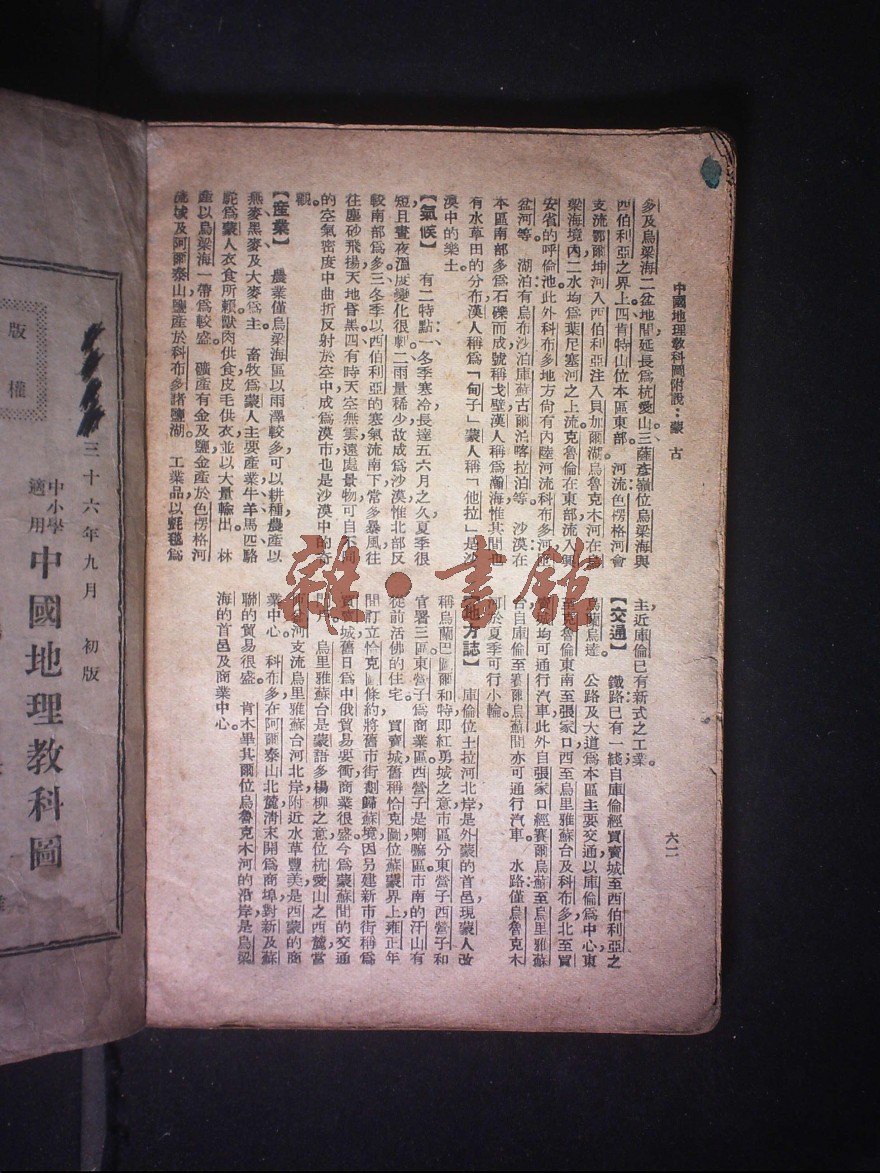 中國地理教科圖附說：蒙古
六二
多及烏梁海二盆地間延長爲杭愛山三薩彥嶺位烏梁海與
西伯利亞之界上四肯特山位本區東部。　河流色楞格河會
支流鄂爾坤河入西伯利亞注入貝加爾湖烏魯克木河在烏
梁海境內二水均爲葉尼塞河之上流克魯倫在東部流入興
安省的呼倫池此外科布多地方尙有內陸河流科布多河匝
盆河等。　湖泊有烏布沙泊庫蘇古爾泊喀拉泊等。　沙漠在
本區南部多爲石礫而成號稱戈壁漢人稱爲瀚海惟其間也
有水草田的分布漢人稱爲「甸子」蒙人稱「他拉」是沙
漠中的樂土
【氣候】　有二特點一、冬季寒冷長達五六月之久夏季很
短且晝夜溫度變化很劇二雨量稀少故成爲沙漠惟北部反
較南部爲多三、冬季以西伯利亞的寒氣流南下常多暴風往
往塵砂飛揚天地昏黑。四有時天空無雲遠處景物可自不同
的空氣密度中曲折反射於空中成爲漠市也是沙漠中的奇
觀。
【產業】　農業僅烏梁海區以雨澤較多，可以耕種農產以
燕麥黑麥及大麥爲主　畜牧爲蒙人主要產業牛羊馬匹駱
駝爲蒙人衣食所賴獸肉供食皮毛供衣並以大量輸出。　林
產以烏梁海一帶爲較盛。　礦產有金及鹽金產於色楞格河
流域及阿爾泰山鹽產於科布多諸鹽湖。　工業品以氈毯爲
主近庫倫已有新式之工業。
【交通】　鐵路已有一綫自庫倫經買賣城至西伯利亞之
烏蘭烏達　公路及大道爲本區主要交通以庫倫爲中心東
至克魯倫東南至張家口西至烏里雅蘇台及科布多北至買
賣城均可通行汽車此外自張家口經賽爾烏蘇至烏里雅蘇
台自庫倫至賽爾烏蘇間亦可通行汽車。　水路僅烏魯克木
河於夏季可行小輪。
【地方誌】　庫倫位土拉河北岸是外蒙的首邑現蒙人改
稱烏蘭巴圖爾和特即紅勇城之意市區分東營子西營子和
官署三區東營子爲商業區。西營子是喇嘛區市南的汗山有
從前活佛的住宅。　買賣城舊稱恰克圖位蘇蒙界上雍正年
間訂立恰克圖條約將舊市街劃歸蘇境因另建新市街稱爲
買賣城舊日爲中俄貿易要衝商業很盛今爲蒙蘇間的交通
烏里雅蘇台是蒙語多楊柳之意位杭愛山之西麓當
河支流烏里雅蘇台河北岸附近水草豐美是西蒙的商
業中心。　科布多在阿爾泰山北麓清末開爲商埠對新及蘇
聯的貿易很盛。　肯木畢其爾位烏魯克木河的沿岸是烏梁
海的首邑及商業中心。
版權
三十六年九月　初版
中小學適用
中國地理教科圖
雜·書館